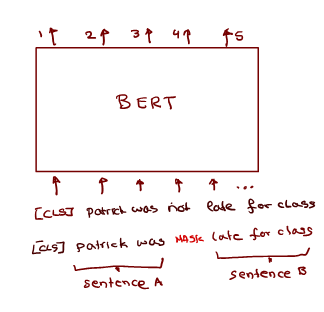 1 2 3 4 5
BERT
...
[CLS] Patrick was not late for class
[CLS] Patrick was MASK late for class
sentence A sentence B